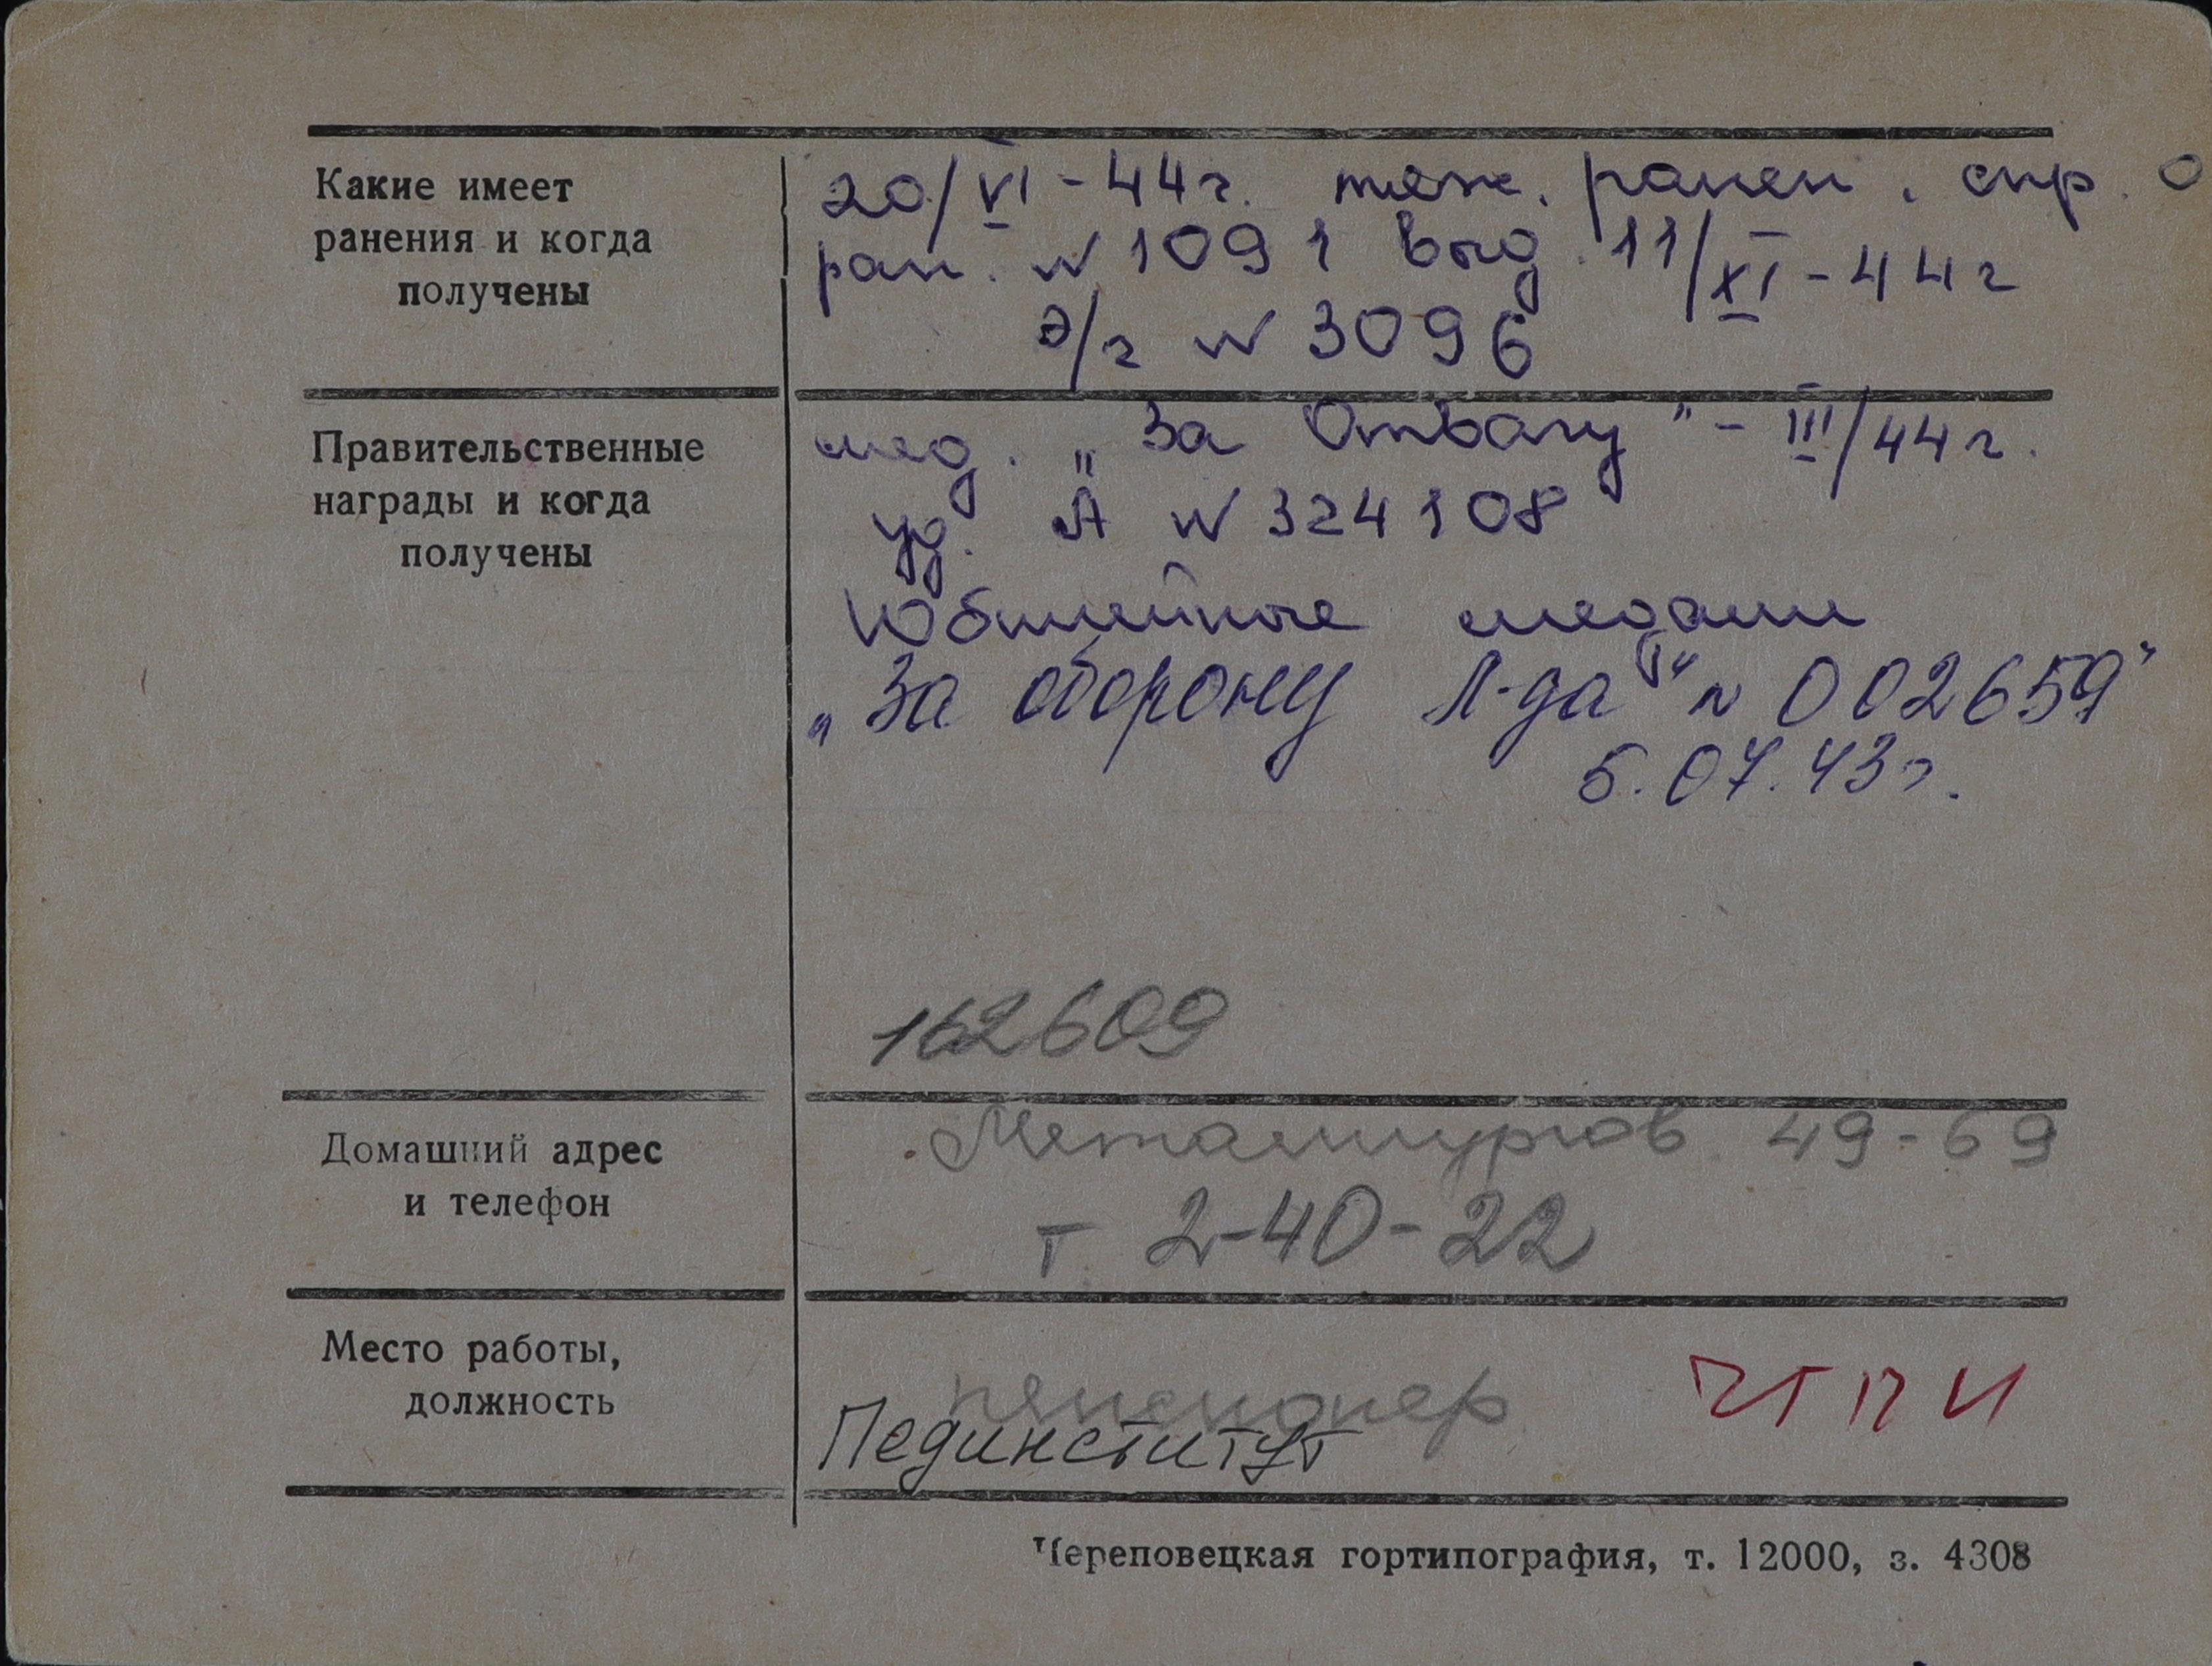 Какие имеет
ранения и когда
получены
20/VI-44г. тяж. ранен. спр. о
ран. N 1091 выд. 11/XI-44г
э/г N 3096
Правительственные
награды и когда
получены
мед. „За Отвагу" - III/44г.
уд. А N 324108
Юбилейные медали
„За оборону Л-да" N 002659"
5.07.43г.
162609
Домашний адрес
и телефон
Металлургов 49-69
т 2-40-22
Место работы,
должность
пенсионер
ЧГПИ
Пединститут
Череповецкая гортипография, т. 12000, з. 4308